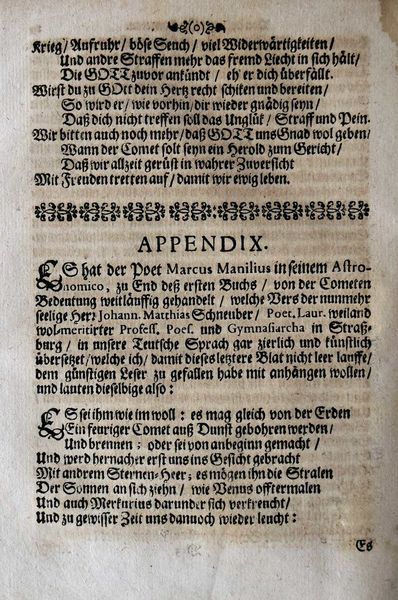 (o)
Krieg / Aufruhr / böse Seuch / viel Widerwärtigkeiten /
Und andre Straffen mehr das fremd Liecht in sich hält /
Die GOTT zuvor ankündt / eh' er dich überfällt.
Wirst du zu GOtt dein Hertz recht schiken und bereiten /
So wird er / wie vorhin / dir wieder gnädig seyn /
Daß dich nicht treffen soll das Unglük / Straff und Pein.
Wir bitten auch noch mehr / daß GOTT uns Gnad wol geben /
Wann der Comet solt seyn ein Herold zum Gericht /
Daß wir allzeit gerüst in wahrer Zuversicht
Mit Freuden tretten auf / damit wir ewig leben.
APPENDIX.
ES hat der Poet Marcus Manilius in seinem Astro-
nomico, zu End deß ersten Buchs / von der Cometen
Bedeutung weitläuffig gehandelt / welche Vers der nunmehr
seelige Herr Johann. Matthias Schneuber / Poet. Laur. weiland
wolmeritirter Profess. Poes. und Gymnasiarcha in Straß-
burg / in unsere Teutsche Sprach gar zierlich und künstlich
übersetzet / welche ich / damit dieses letztere Blat nicht leer lauffe /
dem günstigen Leser zu gefallen habe mit anhängen wollen /
und lauten dieselbige also:
ES sei ihm wie im woll: es mag gleich von der Erden
Ein feuriger Comet auß Dunst gebohren werden /
Und brennen; oder sei von anbeginn gemacht /
Und werd hernacher erst uns ins Gesicht gebracht
Mit andrem Sternen-Heer; es mögen ihn die Stralen
Der Sonnen an sich ziehn / wie Venus offtermalen
Und auch Merkurius darunder sich verkreucht /
Und zu gewisser Zeit uns dannoch wieder leucht:
Es